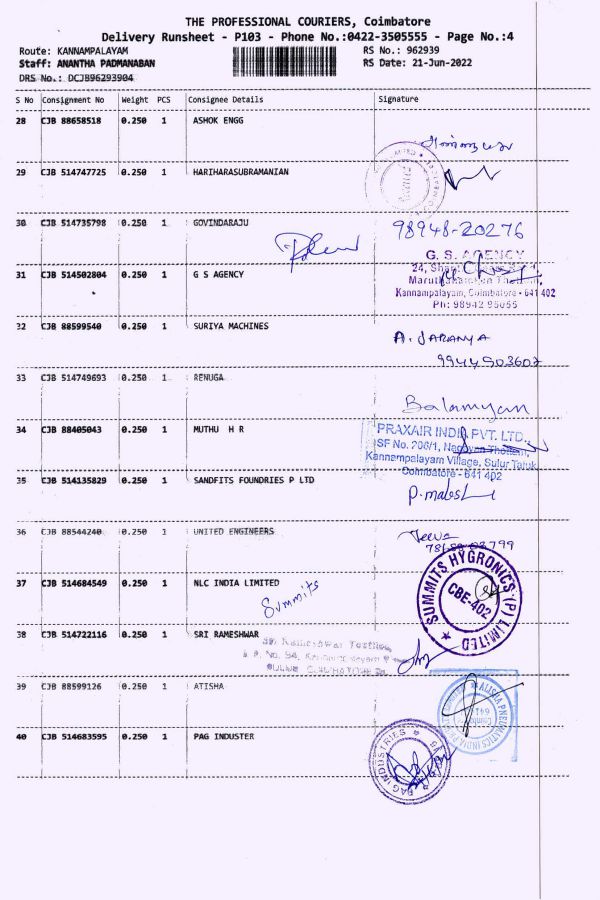 THE PROFESSIONAL COURIERS, Coimbatore
Delivery Runsheet - P103 - Phone No.:0422-3505555 - Page No.:4
Route: KANNAMPALAYAM
RS No.: 962939
Staff: ANANTHA PADMANABAN
RS Date: 21-Jun-2022
DRS No.: DCJB96293904
S No Consignment No Weight PCS Consignee Details Signature
28 CJB 88658518 0.250 1 ASHOK ENGG
29 CJB 514747725 0.250 1 HARIHARASUBRAMANIAN
30 CJB 514735798 0.250 1 GOVINDARAJU
98948-20276
31 CJB 514502804 0.250 1 G S AGENCY
G. S. AGENCY
24,
Kannampalayam, Coimbatore - 641 402
Ph: 98942 95055
32 CJB 88599540 0.250 1 SURIYA MACHINES
A. JARANYA
9944503607
33 CJB 514749693 0.250 1 RENUGA
Balamugan
34 CJB 88405043 0.250 1 MUTHU H R
PRAXAIR INDIA PVT. LTD.,
SF No. 206/1, Nagoyan Thottam,
Kannampalayam Village, Sulur Taluk,
Coimbatore - 641 402
35 CJB 514135829 0.250 1 SANDFITS FOUNDRIES P LTD
P.malesh
36 CJB 88544240 0.250 1 UNITED ENGINEERS
Jeeva
37 CJB 514684549 0.250 1 NLC INDIA LIMITED
Summits
SUMMITS HYGRONICS (P) LIMITED
CBE-402
38 CJB 514722116 0.250 1 SRI RAMESHWAR
39 CJB 88599126 0.250 1 ATISHA
ATISHA PNEUMATICS INDIA
40 CJB 514683595 0.250 1 PAG INDUSTER
PAG INDUSTRIES